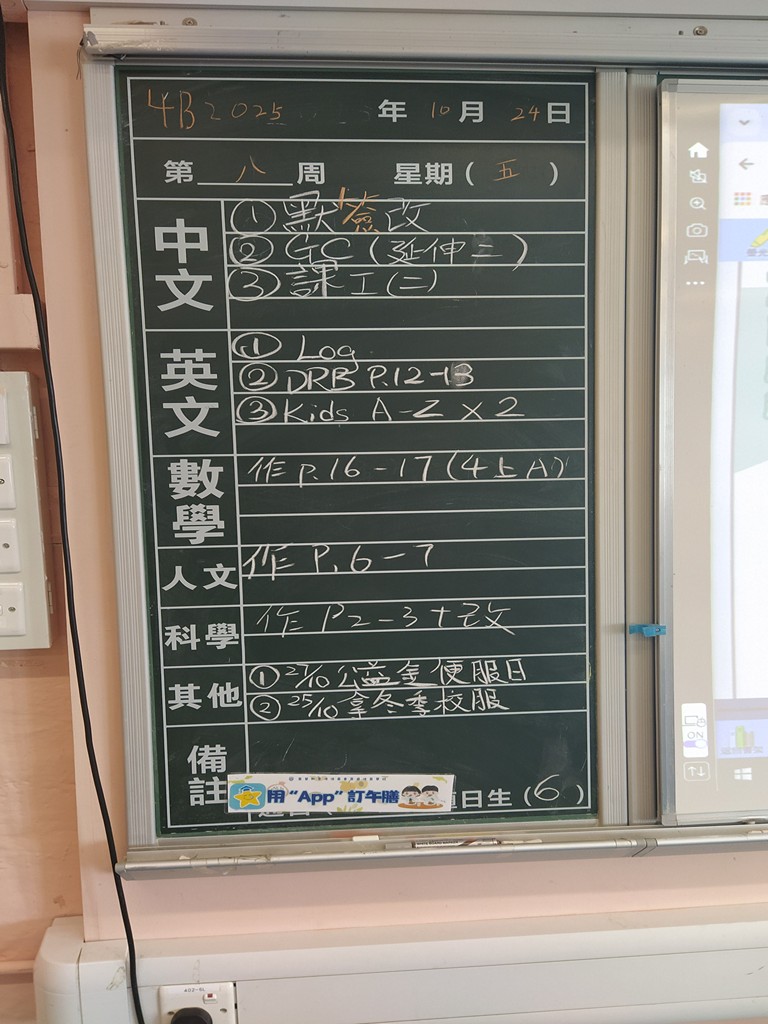 4B 2025 年 10 月 24 日
第 八 周 星期( 五 )
中文
① 默簽改
② GC (延伸二)
③ 課工(二)
英文
① Log
② DRB P.12-13
③ Kids A-Z x 2
數學
作 P.16-17 (4上A)
人文
作 P.6-7
科學
作 P2-3+改
其他
① 27/10 公益金便服日
② 25/10 拿冬季校服
備註
用“App”訂午膳
日生(6)
ON